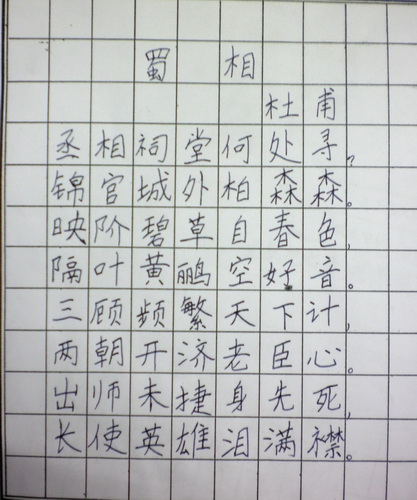 蜀相
杜甫
丞相祠堂何处寻?
锦官城外柏森森。
映阶碧草自春色,
隔叶黄鹂空好音。
三顾频繁天下计,
两朝开济老臣心。
出师未捷身先死,
长使英雄泪满襟。